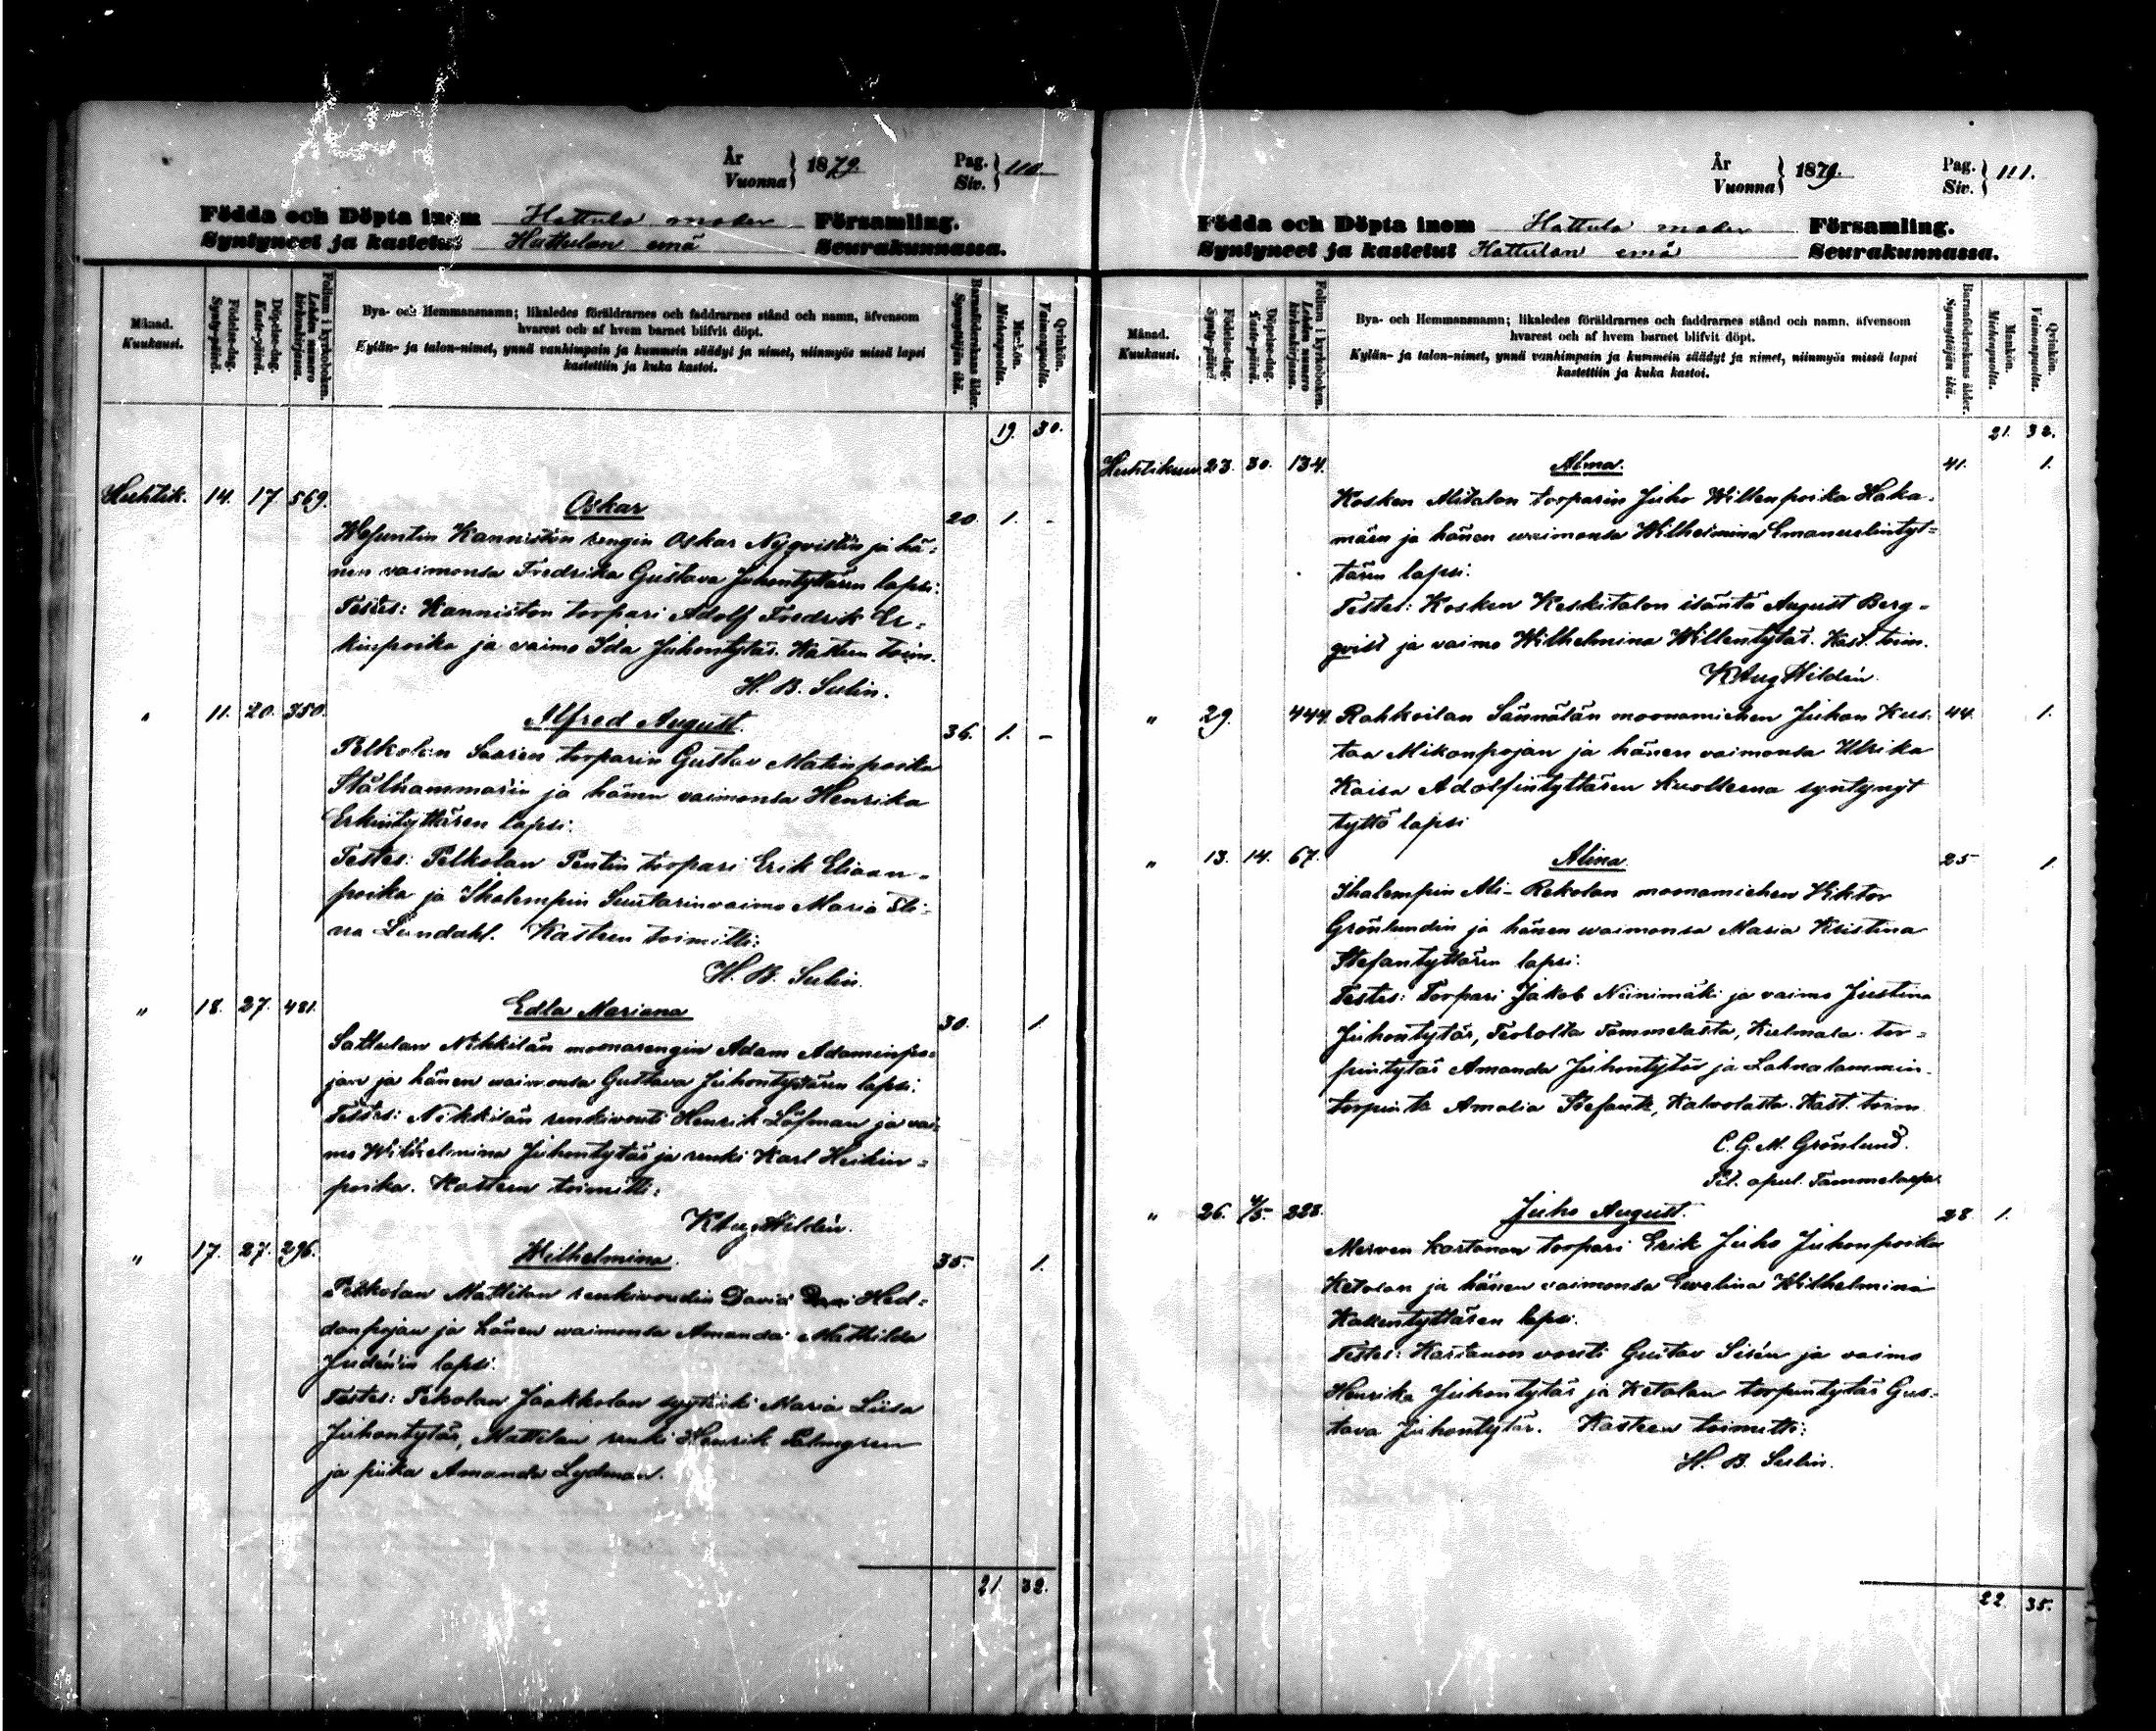 År
Vuonna } 1879. Pag.
Siv. } 110.
Födda och Döpta inom Hattula moder Församling.
Syntyneet ja kastetut Hattulan emä Seurakunnassa.
Månad.
Kuukausi.
Födelse-dag.
Synty-päivä.
Döpelse-dag.
Kaste-päivä.
Folium i kyrkoboken.
Lehden numero
kirkonkirjassa.
Bya- och Hemmansnamn; likaledes föräldrarnes och faddrarnes stånd och namn, äfvensom
hvarest och af hvem barnet blifvit döpt.
Kylän- ja talon-nimet, ynnä vanhimpain ja kummein säädyt ja nimet, niinmyös missä lapsi
kastettiin ja kuka kastoi.
Barnaföderskans ålder.
Synnyttäjän ikä.
Mankön.
Miehenpuolta.
Qvinkön.
Vaimonpuolta.
19. 30.
Huhtik. 14. 17. 569. Oskar 20. 1. -
Kanniston rengin Oskar Nyqvistin ja hä-
nen vaimonsa Fredrika Gustava Juhontyttären lapsi:
Testes: Kanniston torpari Adolf Fredrik Er-
kinpoika ja vaimo Ida Juhontytär. Kasteen toim.
H. B. Sulin.
" 11. 20. 350. Alfred August. 36. 1. -
Pelkolan Saaren torparin Gustav Matinpoika
Stålhammarin ja hänen vaimonsa Henrika
Erkintyttären lapsi:
Testes: Pelkolan Pentin torpari Erik Elian-
poika ja Ihalempin Suutarinvaimo Maria Sti-
na Lundahl. Kasteen toimitti:
H. B. Sulin.
" 18. 27. 481. Edla Mariana 30. 1.
Sattulan Nikkilän moonarengin Adam Adaminpo-
jan ja hänen waimonsa Gustava Juhontyttären lapsi:
Testes: Nikkilän renkivouti Henrik Löfman ja vai-
mo Wilhelmina Juhontytär ja renki Karl Heikin-
poika. Kasteen toimitti:
K Aug Hildén.
" 17. 27. 296. Wilhelmina. 35. 1.
Pelkolan Mattilan renkivoudin David Hed-
danpojan ja hänen waimonsa Amanda Mathilda
lapsi.
Testes: Pelkolan Jaakkolan Maria Liisa
Juhontytär, Mattilan renki Henrik Palmgren
ja piika Amanda Lydman.
21. 32.
År
Vuonna } 1879. Pag.
Siv. } 111.
Födda och Döpta inom Hattula moder Församling.
Syntyneet ja kastetut Hattulan emä Seurakunnassa.
Månad.
Kuukausi.
Födelse-dag.
Synty-päivä.
Döpelse-dag.
Kaste-päivä.
Folium i kyrkoboken.
Lehden numero
kirkonkirjassa.
Bya- och Hemmansnamn; likaledes föräldrarnes och faddrarnes stånd och namn, äfvensom
hvarest och af hvem barnet blifvit döpt.
Kylän- ja talon-nimet, ynnä vanhimpain ja kummein säädyt ja nimet, niinmyös missä lapsi
kastettiin ja kuka kastoi.
Barnaföderskans ålder.
Synnyttäjän ikä.
Mankön.
Miehenpuolta.
Qvinkön.
Vaimonpuolta.
21. 32.
Huhtikuu. 23. 30. 134. Alma. 41. 1.
Kosken Alitalon torparin Juho Willenpoika Haka-
mäen ja hänen waimonsa Wilhelmina Emanuelintyt-
tären lapsi:
Testes: Kosken Keskitalon isäntä August Berg-
qvist ja vaimo Wilhelmina Willentytär. Kast. toim.
K Aug Hildén.
" 29. 444. Rahkoilan Sännätän moonamiehen Juhan Kus- 44. 1.
taa Mikonpojan ja hänen vaimonsa Ulrika
Kaisa Adolfintyttären kuolleena syntynyt
tyttö lapsi
" 13. 14. 67. Alina. 25 1.
Ihalempin Ali-Rekolan moonamiehen Viktor
Grönlundin ja hänen waimonsa Maria Kristina
Stefantyttären lapsi:
Testes: Torpari Jakob Niinimäki ja vaimo Justina
Juhontytär, Teurolta Tammelasta, Kulmala tor-
pintytär Amanda Juhontytär ja Lahnalammin-
torpin tr Amalia Stefantr, Kalvolasta. Kast. toim.
C. G. M. Grönlund.
Pit. apul. Tammelassa.
" 26. 4/5. 228. Juho August. 28. 1.
Merven kartanon torpari Erik Juho Juhonpoika
Ketolan ja hänen vaimonsa Evelina Wilhelmina
Kallentyttären lapsi.
Testes: Kartanon vouti Gustav Sirén ja vaimo
Henrika Juhontytär ja Ketolan torpintytär Gus-
tava Juhontytär. Kasteen toimitti:
H. B. Sulin.
22. 35.